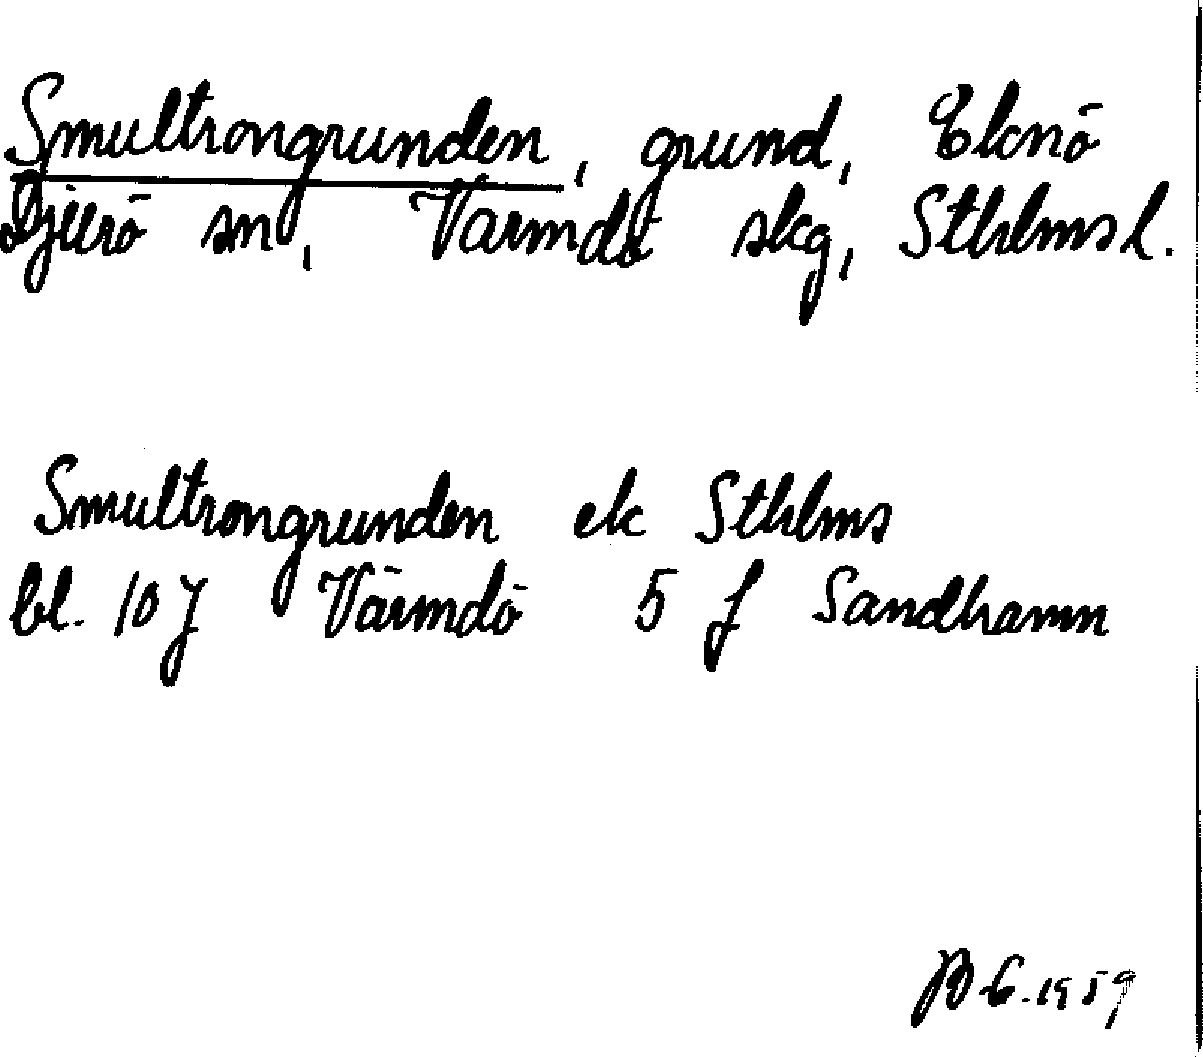 Smultrongrunden, grund, Eknö
Djurö sn, Värmdö skg, Sthlms l.
Smultrongrunden ek Sthlms
bl. 10 J Värmdö 5 f Sandhamn
1959